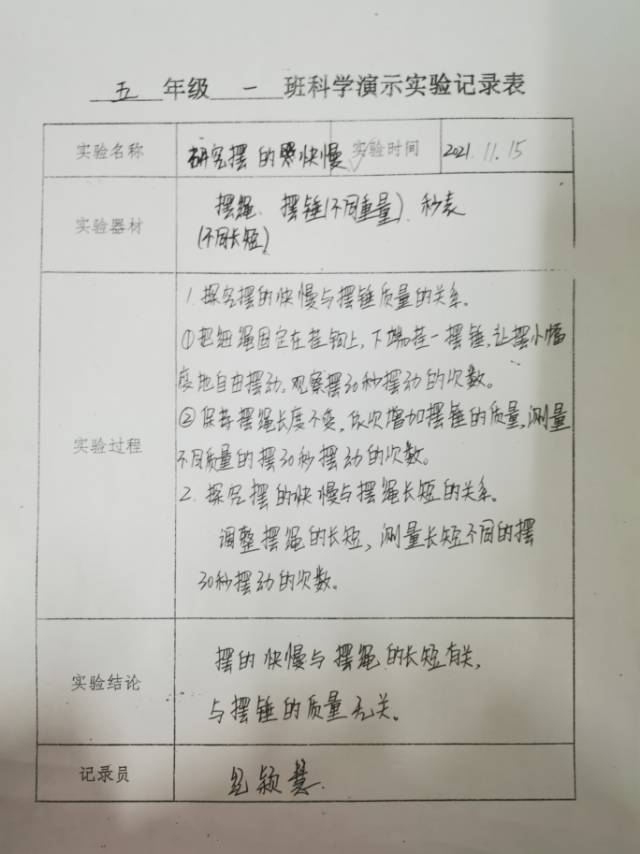 五 年级 一 班科学演示实验记录表
实验名称 研究摆的快慢 实验时间 2021.11.15
实验器材 摆绳、摆锤(不同重量)、秒表
(不同长短)
1. 探究摆的快慢与摆锤质量的关系。
①把细绳固定在挂钩上,下端挂一摆锤,让摆小幅
度地自由摆动,观察摆30秒摆动的次数。
②保持摆绳长度不变,依次增加摆锤的质量,测量
实验过程
不同质量的摆30秒摆动的次数。
2. 探究摆的快慢与摆绳长短的关系。
调整摆绳的长短,测量长短不同的摆
30秒摆动的次数。
实验结论 摆的快慢与摆绳的长短有关,
与摆锤的质量无关。
记录员 颖慧